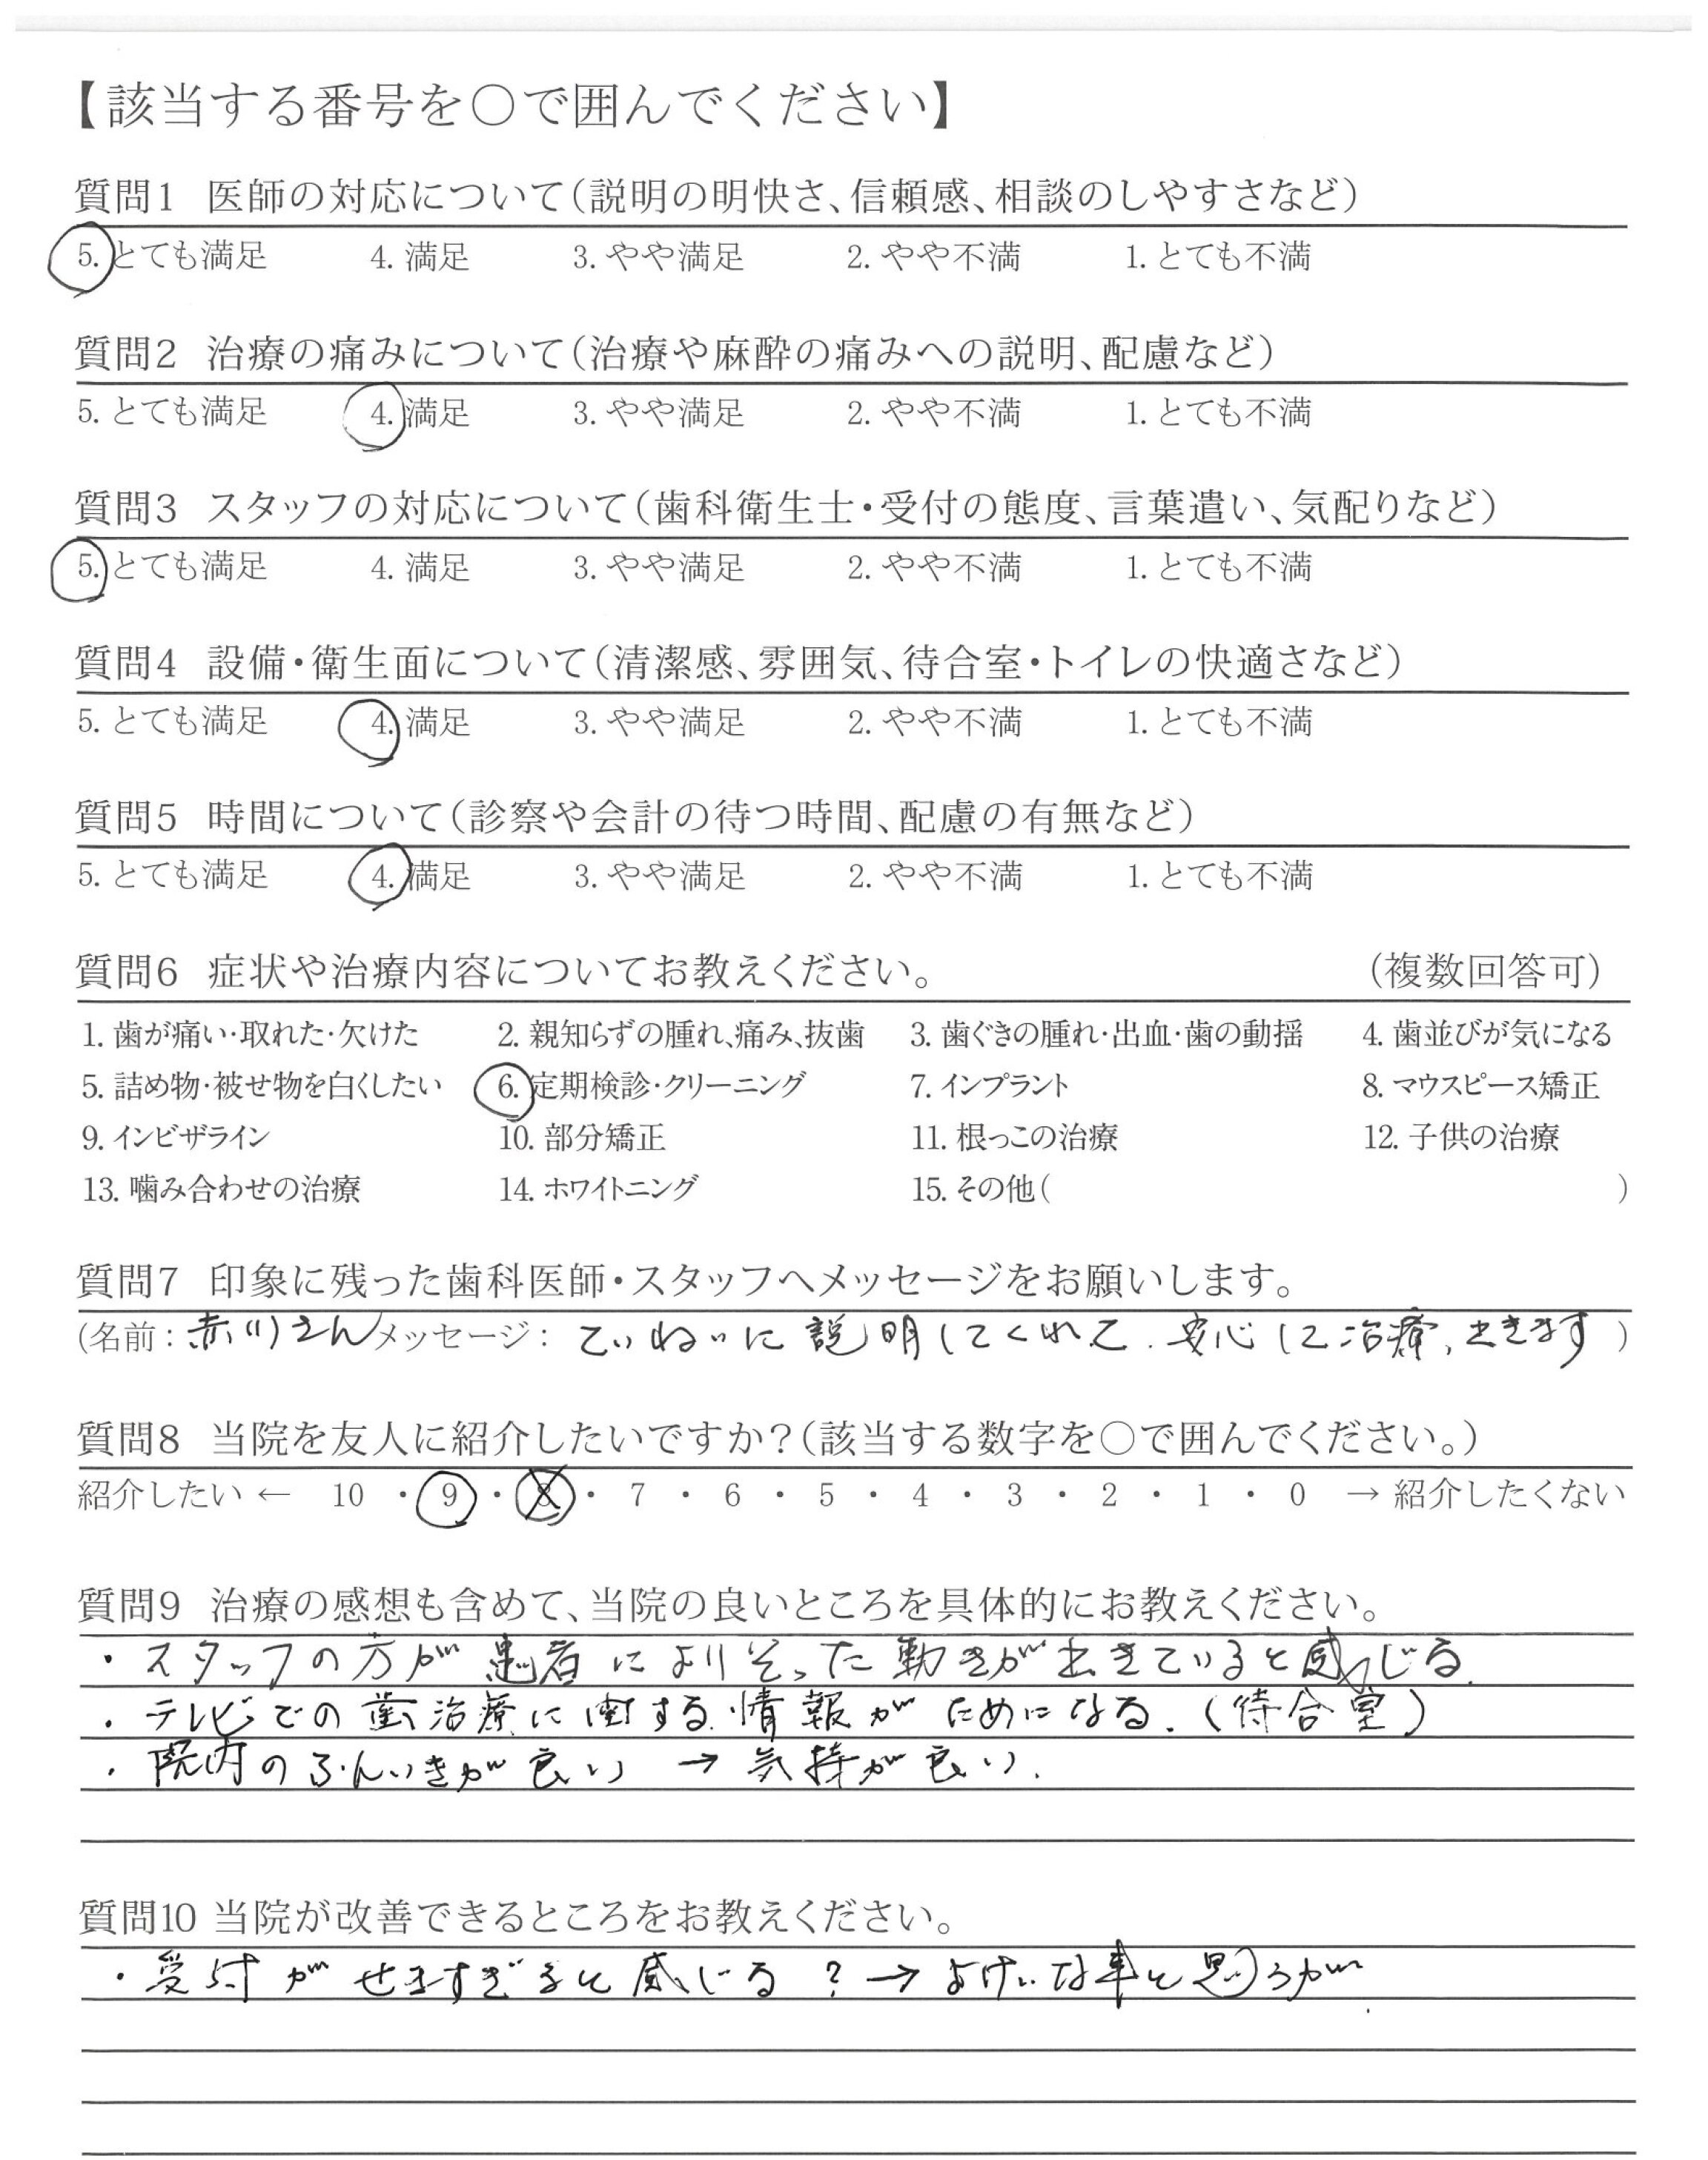 【該当する番号を○で囲んでください】
質問1 医師の対応について(説明の明快さ、信頼感、相談のしやすさなど)
5. とても満足 4. 満足 3. やや満足 2. やや不満 1. とても不満
質問2 治療の痛みについて(治療や麻酔の痛みへの説明、配慮など)
5. とても満足 4. 満足 3. やや満足 2. やや不満 1. とても不満
質問3 スタッフの対応について(歯科衛生士・受付の態度、言葉遣い、気配りなど)
5. とても満足 4. 満足 3. やや満足 2. やや不満 1. とても不満
質問4 設備・衛生面について(清潔感、雰囲気、待合室・トイレの快適さなど)
5. とても満足 4. 満足 3. やや満足 2. やや不満 1. とても不満
質問5 時間について(診察や会計の待つ時間、配慮の有無など)
5. とても満足 4. 満足 3. やや満足 2. やや不満 1. とても不満
質問6 症状や治療内容についてお教えください。 (複数回答可)
1. 歯が痛い・取れた・欠けた 2. 親知らずの腫れ、痛み、抜歯 3. 歯ぐきの腫れ・出血・歯の動揺 4. 歯並びが気になる
5. 詰め物・被せ物を白くしたい 6. 定期検診・クリーニング 7. インプラント 8. マウスピース矯正
9. インビザライン 10. 部分矯正 11. 根っこの治療 12. 子供の治療
13. 噛み合わせの治療 14. ホワイトニング 15. その他( )
質問7 印象に残った歯科医師・スタッフへメッセージをお願いします。
(名前：赤川さん メッセージ： ていねいに説明してくれて、安心して治療出きます )
質問8 当院を友人に紹介したいですか？(該当する数字を○で囲んでください。)
紹介したい ← 10 ・ 9 ・ 8 ・ 7 ・ 6 ・ 5 ・ 4 ・ 3 ・ 2 ・ 1 ・ 0 → 紹介したくない
質問9 治療の感想も含めて、当院の良いところを具体的にお教えください。
・スタッフの方が患者によりそった動きが出きていると感じる.
・テレビでの歯治療に関する情報がためになる.(待合室)
・院内のふんいきが良い → 気持が良い.
質問10 当院が改善できるところをお教えください。
・受付がせますぎると感じる？→よけいな事と思うが